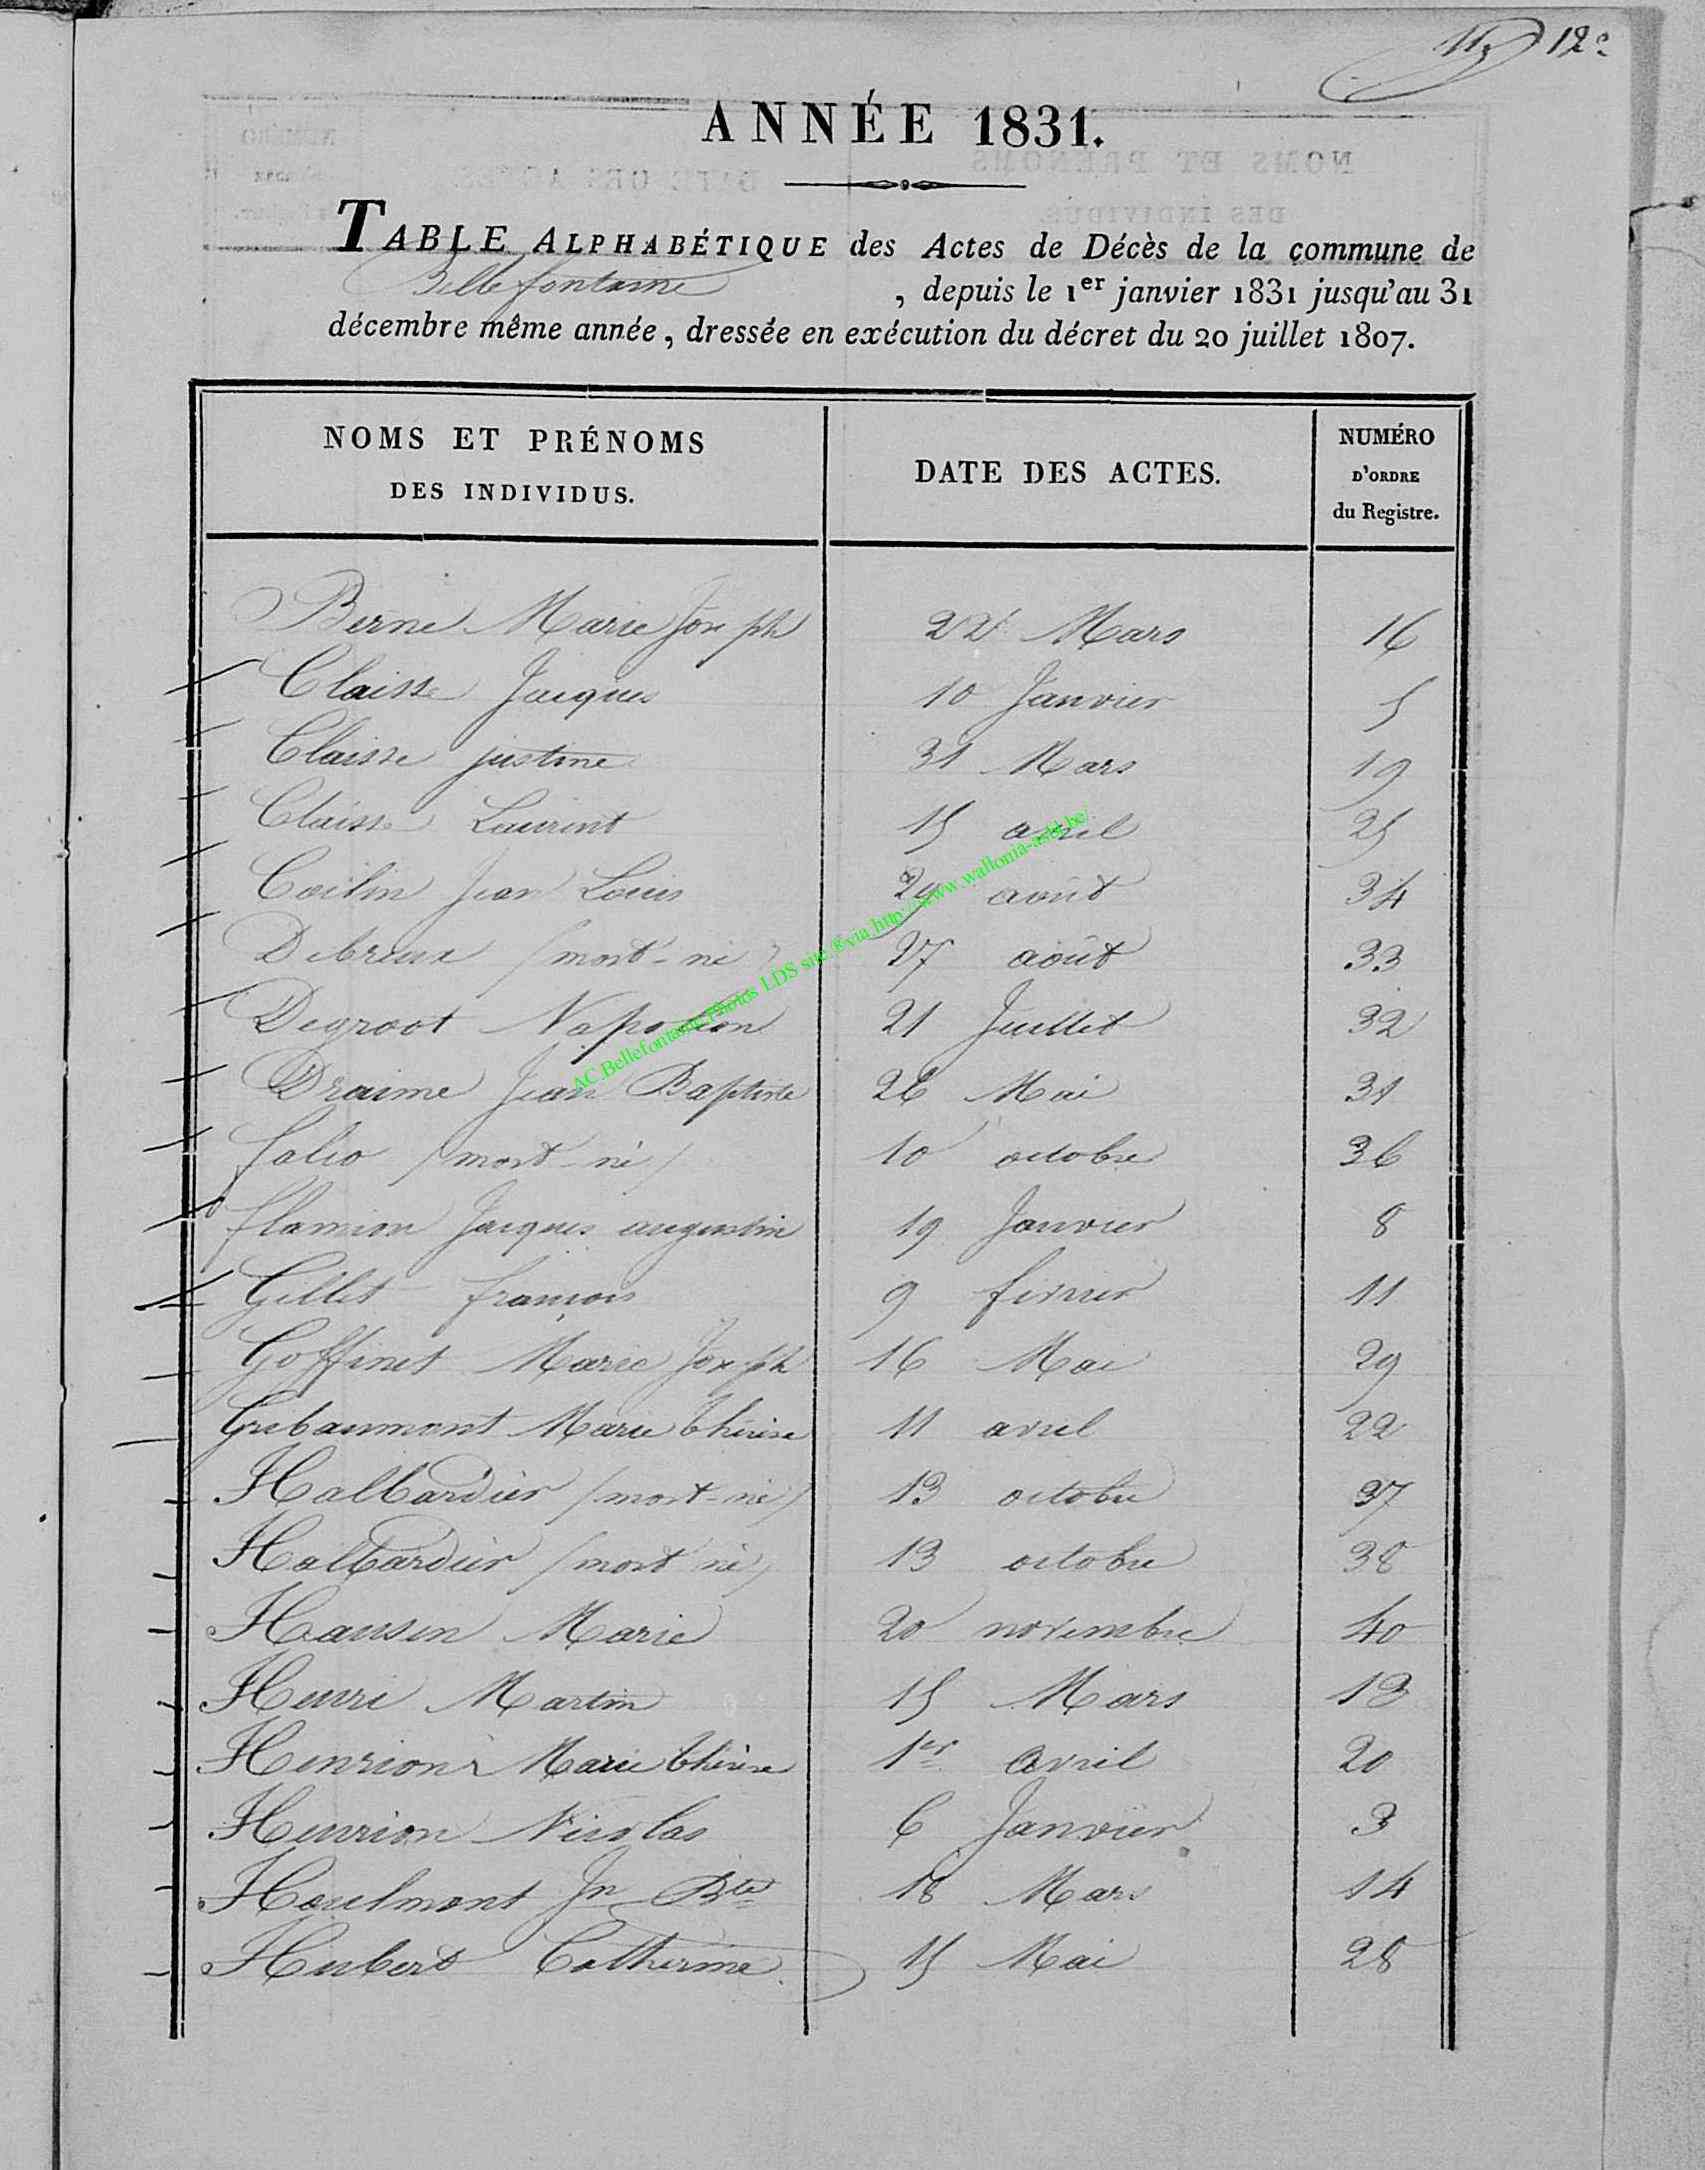 12e
ANNÉE 1831.
TABLE ALPHABÉTIQUE des Actes de Décès de la commune de
Bellefontaine, depuis le 1er janvier 1831 jusqu'au 31
décembre même année, dressée en exécution du décret du 20 juillet 1807.
NOMS ET PRÉNOMS DES INDIVIDUS. DATE DES ACTES. NUMÉRO D'ORDRE du Registre.
Berne Marie Joseph 22 Mars 16
Claisse Jacques 10 Janvier 5
Claisse justine 31 Mars 19
Claisse Laurent 15 avril 25
Collin Jean Louis 29 août 34
Debreux (mort-né) 27 août 33
Degroot Napoléon 21 Juillet 32
Draime Jean Baptiste 26 Mai 31
falio (mort-né) 10 octobre 36
flamion Jacques augustin 19 Janvier 8
Gillet françois 9 fevrier 11
Goffinet Marie Joseph 16 Mai 29
Gribaumont Marie thérèse 11 avril 22
Halbardier (mort-né) 13 octobre 37
Halbardier (mort né) 13 octobre 38
Hansen Marie 20 novembre 40
Henri Martin 15 Mars 13
Henrion Marie thérèse 1er avril 20
Henrion Nicolas 6 Janvier 3
Houlmont Jn Bte 18 Mars 14
Hubert Catherine 15 Mai 28
AC Bellefontaine Photos LDS site ®via http://www.wallonia-asbl.be/